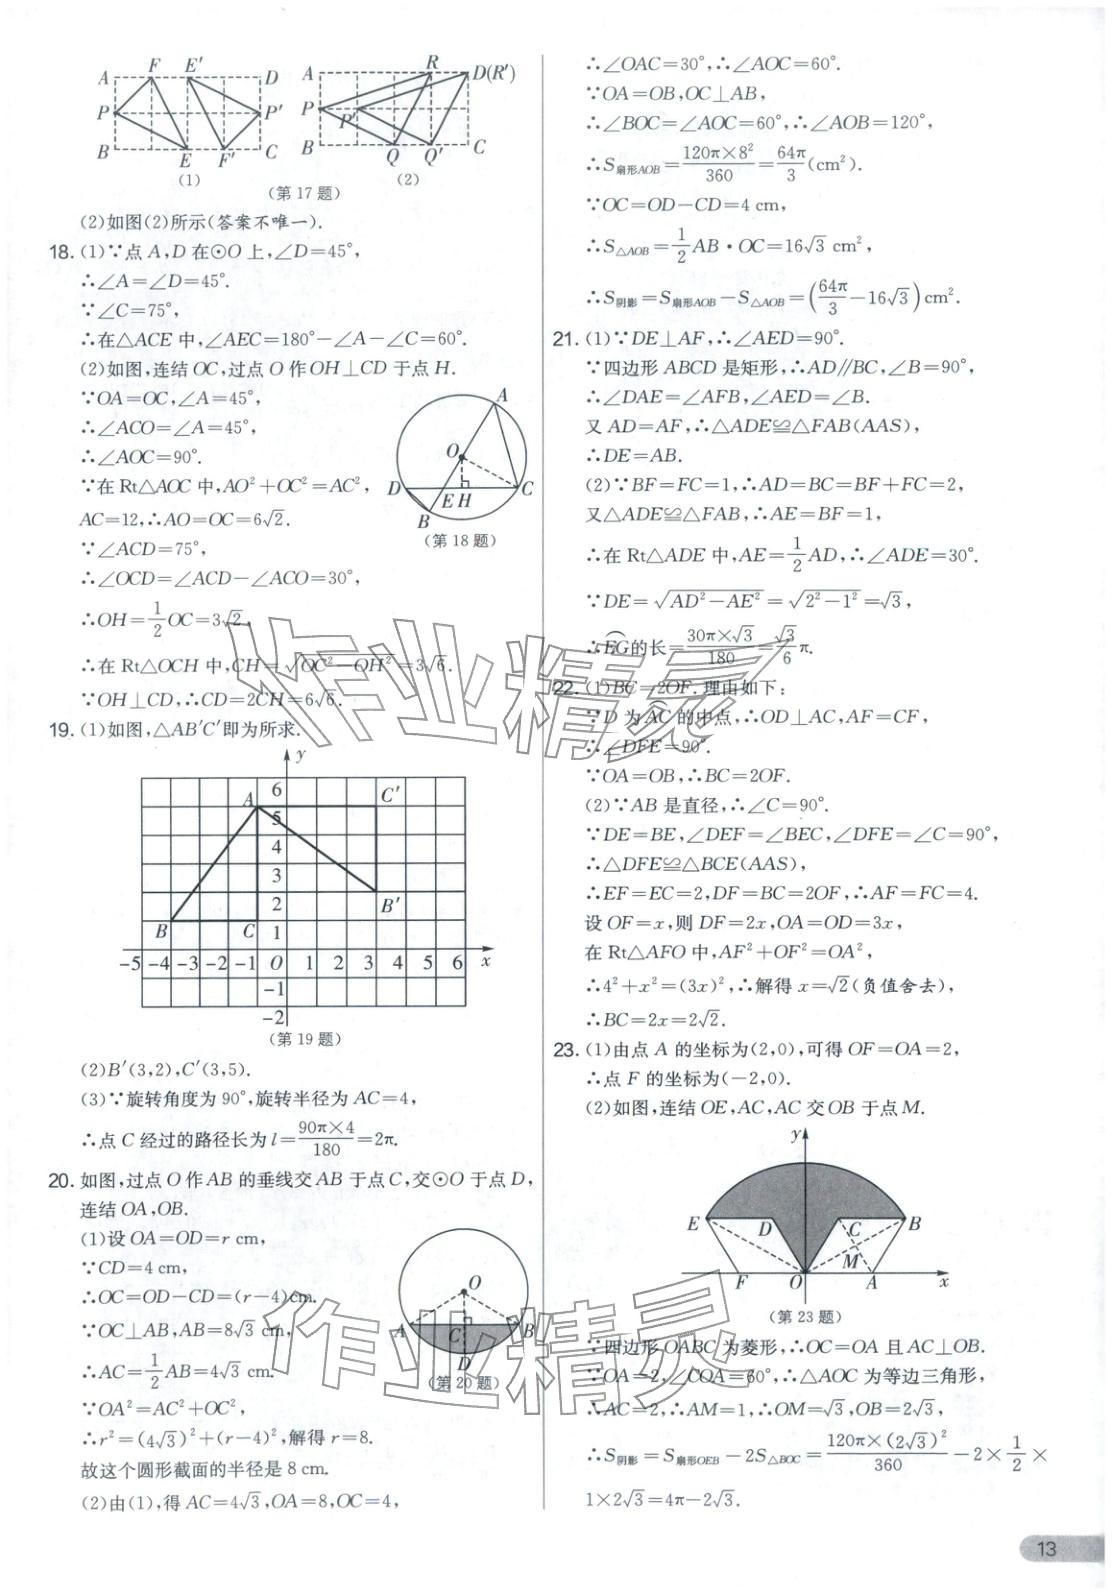 A F E′ D
P P′
B E F′ C
(1)
A R D(R′)
P P′
B Q Q′ C
(2)
(第 17 题)
(2)如图(2)所示(答案不唯一).
18. (1)∵点 A,D 在⊙O 上,∠D=45°,
∴∠A=∠D=45°.
∵∠C=75°,
∴在△ACE 中,∠AEC=180°-∠A-∠C=60°.
(2)如图,连结 OC,过点 O 作 OH⊥CD 于点 H.
∵OA=OC,∠A=45°,
∴∠ACO=∠A=45°,
∴∠AOC=90°.
∵在 Rt△AOC 中,AO²+OC²=AC²,
AC=12,∴AO=OC=6√2.
∵∠ACD=75°,
∴∠OCD=∠ACD-∠ACO=30°,
∴OH=1/2 OC=3√2,
∴在 Rt△OCH 中,CH=√(OC²-OH²)=3√6.
∵OH⊥CD,∴CD=2CH=6√6.
A
O
D E H C
B
(第 18 题)
19. (1)如图,△AB′C′即为所求.
y
6
A C′
5
4
3
2 B′
B C 1
-5 -4 -3 -2 -1 O 1 2 3 4 5 6 x
-1
-2
(第 19 题)
(2)B′(3,2),C′(3,5).
(3)∵旋转角度为 90°,旋转半径为 AC=4,
∴点 C 经过的路径长为 l=90π×4/180=2π.
20. 如图,过点 O 作 AB 的垂线交 AB 于点 C,交⊙O 于点 D,
连结 OA,OB.
(1)设 OA=OD=r cm,
∵CD=4 cm,
∴OC=OD-CD=(r-4)cm.
∵OC⊥AB,AB=8√3 cm,
∴AC=1/2 AB=4√3 cm,
∵OA²=AC²+OC²,
∴r²=(4√3)²+(r-4)²,解得 r=8.
故这个圆形截面的半径是 8 cm.
(2)由(1),得 AC=4√3,OA=8,OC=4,
O
A C B
D
(第 20 题)
∴∠OAC=30°,∴∠AOC=60°.
∵OA=OB,OC⊥AB,
∴∠BOC=∠AOC=60°,∴∠AOB=120°,
∴S扇形AOB=120π×8²/360=64π/3(cm²).
∵OC=OD-CD=4 cm,
∴S△AOB=1/2 AB·OC=16√3 cm²,
∴S阴影=S扇形AOB-S△AOB=(64π/3-16√3)cm².
21. (1)∵DE⊥AF,∴∠AED=90°.
∵四边形 ABCD 是矩形,∴AD∥BC,∠B=90°,
∴∠DAE=∠AFB,∠AED=∠B.
又 AD=AF,∴△ADE≌△FAB(AAS),
∴DE=AB.
(2)∵BF=FC=1,∴AD=BC=BF+FC=2,
又△ADE≌△FAB,∴AE=BF=1,
∴在 Rt△ADE 中,AE=1/2 AD,∴∠ADE=30°.
∵DE=√(AD²-AE²)=√(2²-1²)=√3,
∴EG⌒的长=30π×√3/180=√3/6 π.
22. (1)BC=2OF.理由如下:
∵D 为 AC⌒ 的中点,∴OD⊥AC,AF=CF,
∴∠DFE=90°.
∵OA=OB,∴BC=2OF.
(2)∵AB 是直径,∴∠C=90°.
∵DE=BE,∠DEF=∠BEC,∠DFE=∠C=90°,
∴△DFE≌△BCE(AAS),
∴EF=EC=2,DF=BC=2OF,∴AF=FC=4.
设 OF=x,则 DF=2x,OA=OD=3x,
在 Rt△AFO 中,AF²+OF²=OA²,
∴4²+x²=(3x)²,∴解得 x=√2(负值舍去),
∴BC=2x=2√2.
23. (1)由点 A 的坐标为(2,0),可得 OF=OA=2,
∴点 F 的坐标为(-2,0).
(2)如图,连结 OE,AC,AC 交 OB 于点 M.
y
E D C B
M
F O A x
(第 23 题)
∵四边形 OABC 为菱形,∴OC=OA 且 AC⊥OB.
∵OA=2,∠COA=60°,∴△AOC 为等边三角形,
∴AC=2,∴AM=1,∴OM=√3,OB=2√3,
∴S阴影=S扇形OEB-2S△BOC=120π×(2√3)²/360-2×1/2×
1×2√3=4π-2√3.
13
作业精灵
作业精灵